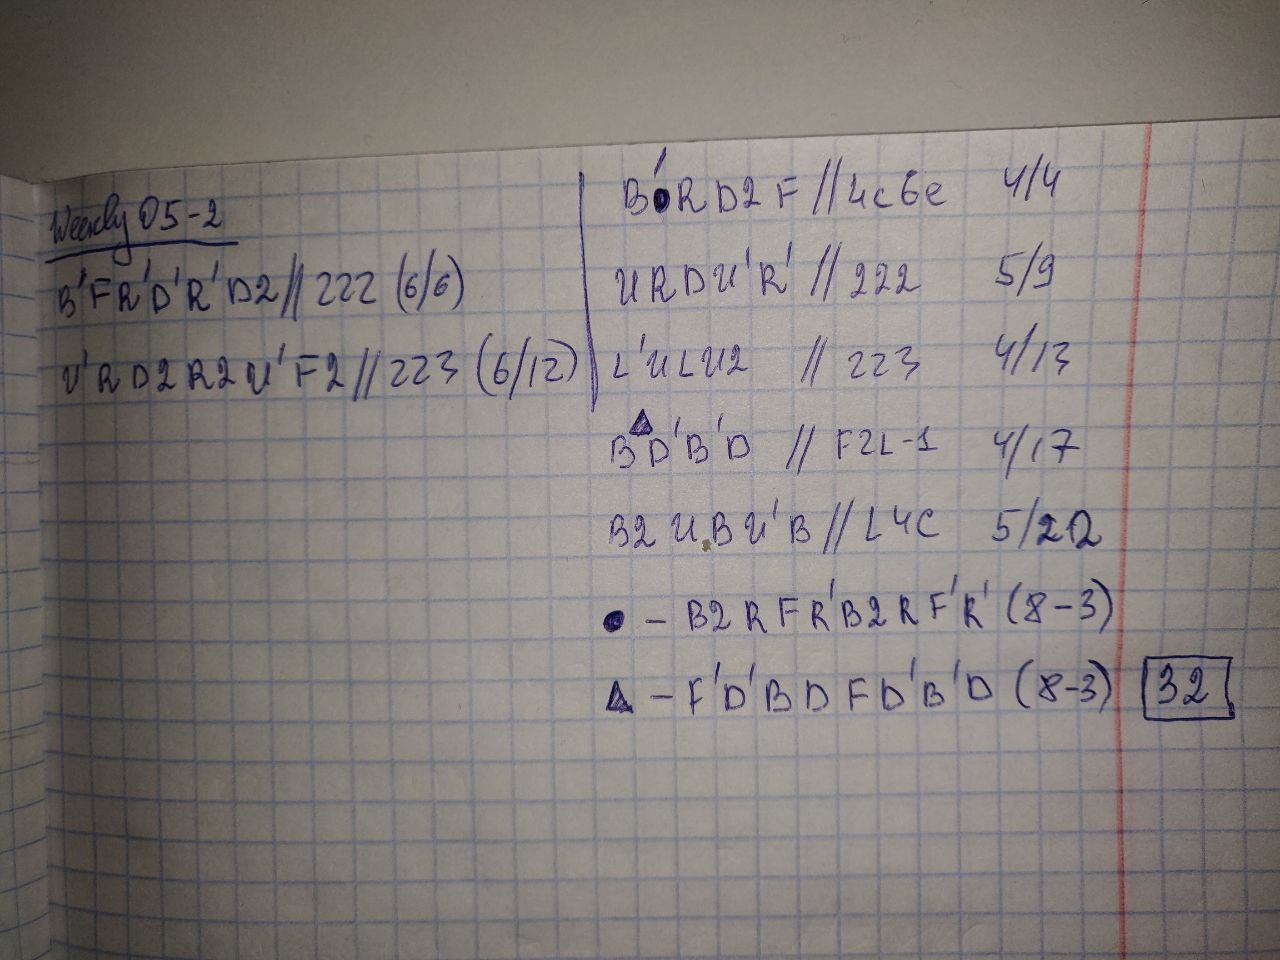 Weekly 05-2
B'FR'D'R'D2//222 (6/6)
U'RD2R2U'F2//223 (6/12)
B'●RD2F//4c6e 4/4
URDU'R'//222 5/9
L'ULU2 //223 4/13
B▲D'B'D //F2L-1 4/17
B2UBU'B//L4C 5/22
● - B2RFR'B2RF'R' (8-3)
▲ - F'D'BDFD'B'D (8-3) 32